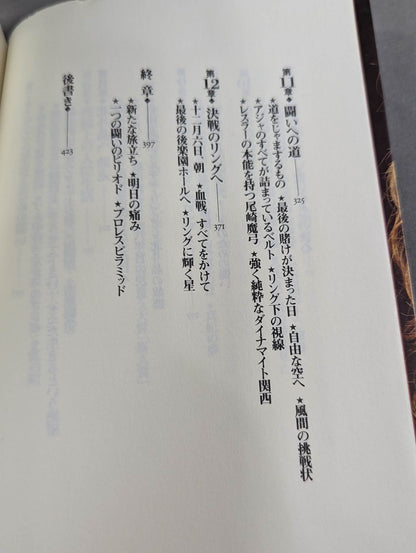 第11章◆闘いへの道――325
★道をじゃまするもの ★最後の賭けが決まった日 ★自由な空へ ★風間の挑戦状
★アジャのすべてが詰まっているベルト ★リング下の視線
★レスラーの本能を持つ尾崎魔弓 ★強く純粋なダイナマイト関西
第12章◆決戦のリングへ――371
★十二月六日、朝 ★血戦、すべてをかけて
★最後の後楽園ホールへ ★リングに輝く星
終章◆――397
★新たな旅立ち ★明日の痛み
★二つの闘いのピリオド ★プロレスピラミッド
後書き◆――423